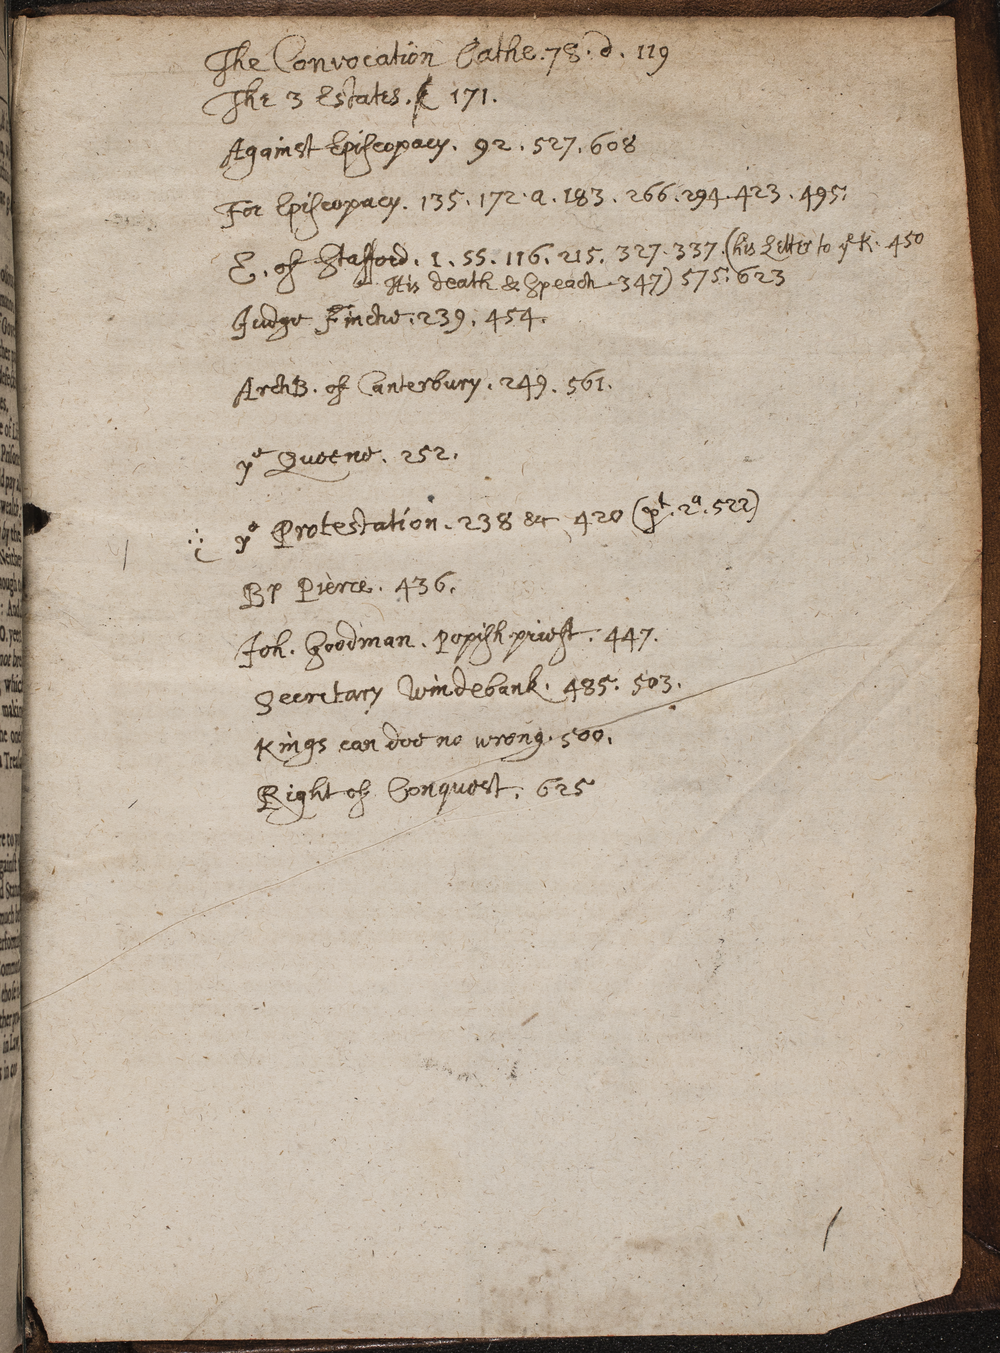 The Convocation Oathe. 78. d. 119
The 3 Estates. 171.
Against Episcopacy. 92. 527. 608
For Episcopacy. 135. 172. a. 183. 266. 294. 423. 495.
E. of Stafford. 1. 55. 116. 215. 327. 337 (his Letter to yͤ K. 450
His death & Speach 347) 575. 623
Judge Finche. 239. 454.
ArchB. of Canterbury. 249. 561.
yͤ Queene. 252.
yͤ Protestation. 238 &c 420 (pt. 2a. 522)
Bp Pierce. 436.
Joh. Goodman. Popish priest. 447.
Secretary Windebank. 485. 503.
Kings can doe no wrong. 500.
Right of Conquest. 625